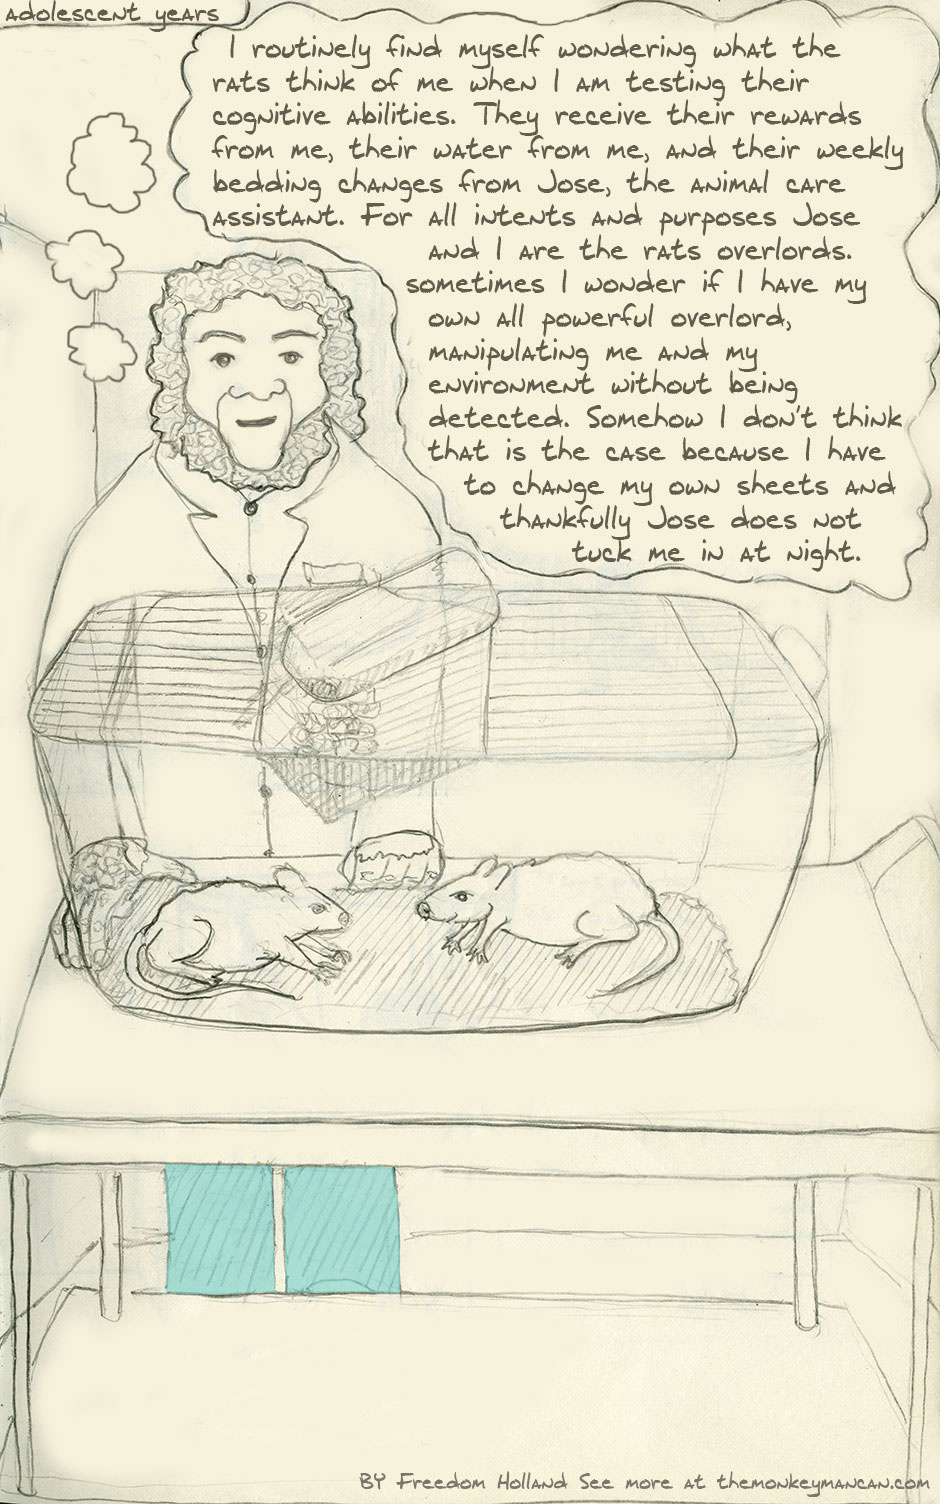 adolescent years
I routinely find myself wondering what the
rats think of me when I am testing their
cognitive abilities. They receive their rewards
from me, their water from me, and their weekly
bedding changes from Jose, the animal care
assistant. For all intents and purposes Jose
and I are the rats overlords.
sometimes I wonder if I have my
own all powerful overlord,
manipulating me and my
environment without being
detected. Somehow I don't think
that is the case because I have
to change my own sheets and
thankfully Jose does not
tuck me in at night.
BY Freedom Holland See more at themonkeymancan.com